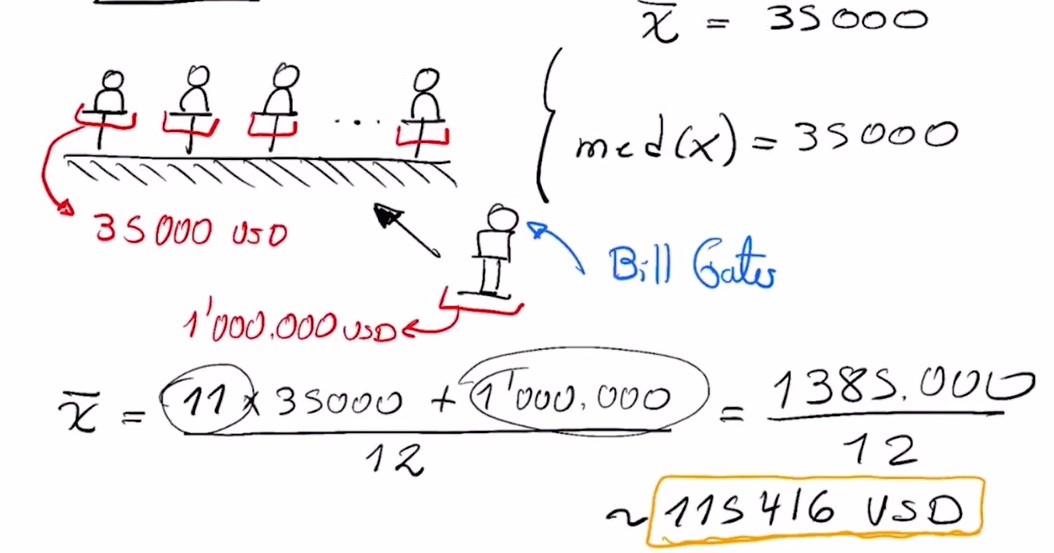 x̄ = 35000
...
med(x) = 35000
35000 USD
Bill Gates
1'000.000 USD
x̄ = 11 x 35000 + 1'000.000 / 12 = 1385.000 / 12
~ 115416 USD